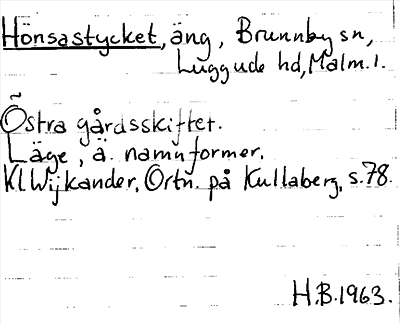 Hönsastycket, äng, Brunnby sn,
Luggude hd, Malm. l.
Östra gårdsskiftet.
Läge, ä. namnformer.
Kl. Wijkander, Ortn. på Kullaberg, s. 78.
H.B. 1963.